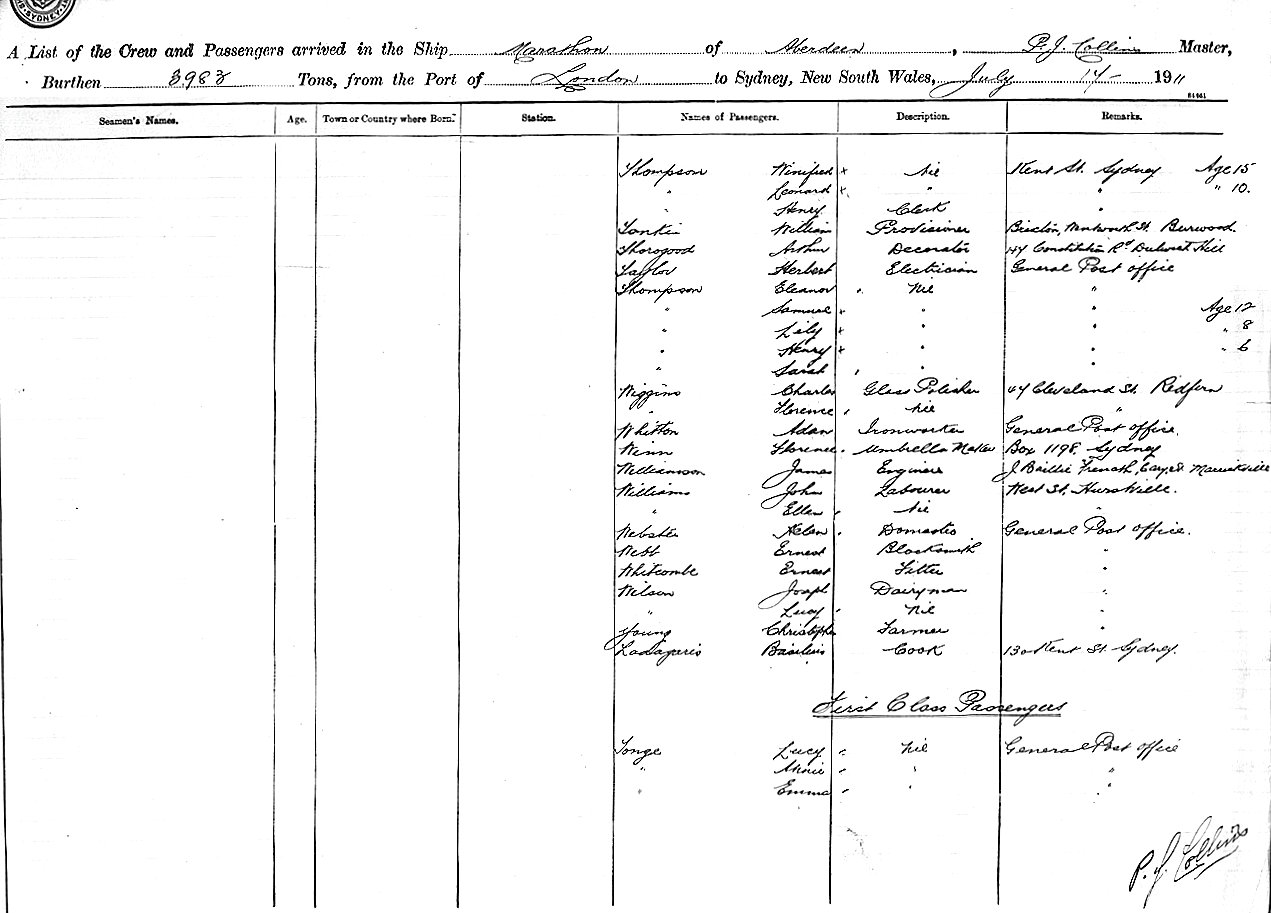 SYDNEY
A List of the Crew and Passengers arrived in the Ship Marathon of Aberdeen, P. J. Collins Master,
Burthen 3983 Tons, from the Port of London to Sydney, New South Wales, July 14 - 1911
Seamen's Names. Age. Town or Country where Born. Station. Names of Passengers. Description. Remarks.
Thompson Winifred x Nil Kent St. Sydney Age 15
" Leonard x " " " 10.
" Henry Clerk "
William Provisioner Burwood.
Thorogood Arthur Decorator Constitution Rd Dulwich Hill
Taylor Herbert Electrician General Post office
Thompson Eleanor " Nil "
" Samuel x " " Age 12
" Lily x " " " 8
" Henry x " " " 6
" Sarah " "
Wiggins Charles Glass Polisher 44 Cleveland St. Redfern
" Florence " Nil "
Whitton Adam Ironworker General Post office.
Wenn Florence " Umbrella Maker Box 1198, Sydney
Williamson James Engineer J. Baillie Marrickville
Williams John Labourer West St. Hurstville.
" Ellen " Nil
Webster Helen " Domestic General Post office.
Webb Ernest Blacksmith "
Whitcombe Ernest Fitter "
Wilson Joseph Dairyman "
" Lucy " Nil "
Young Christopher Farmer "
Basilius Cook 130 Kent St Sydney.
First Class Passengers
Tonge Lucy " Nil General Post office
" Annie " " "
" Emma " " "
P. J. Collins